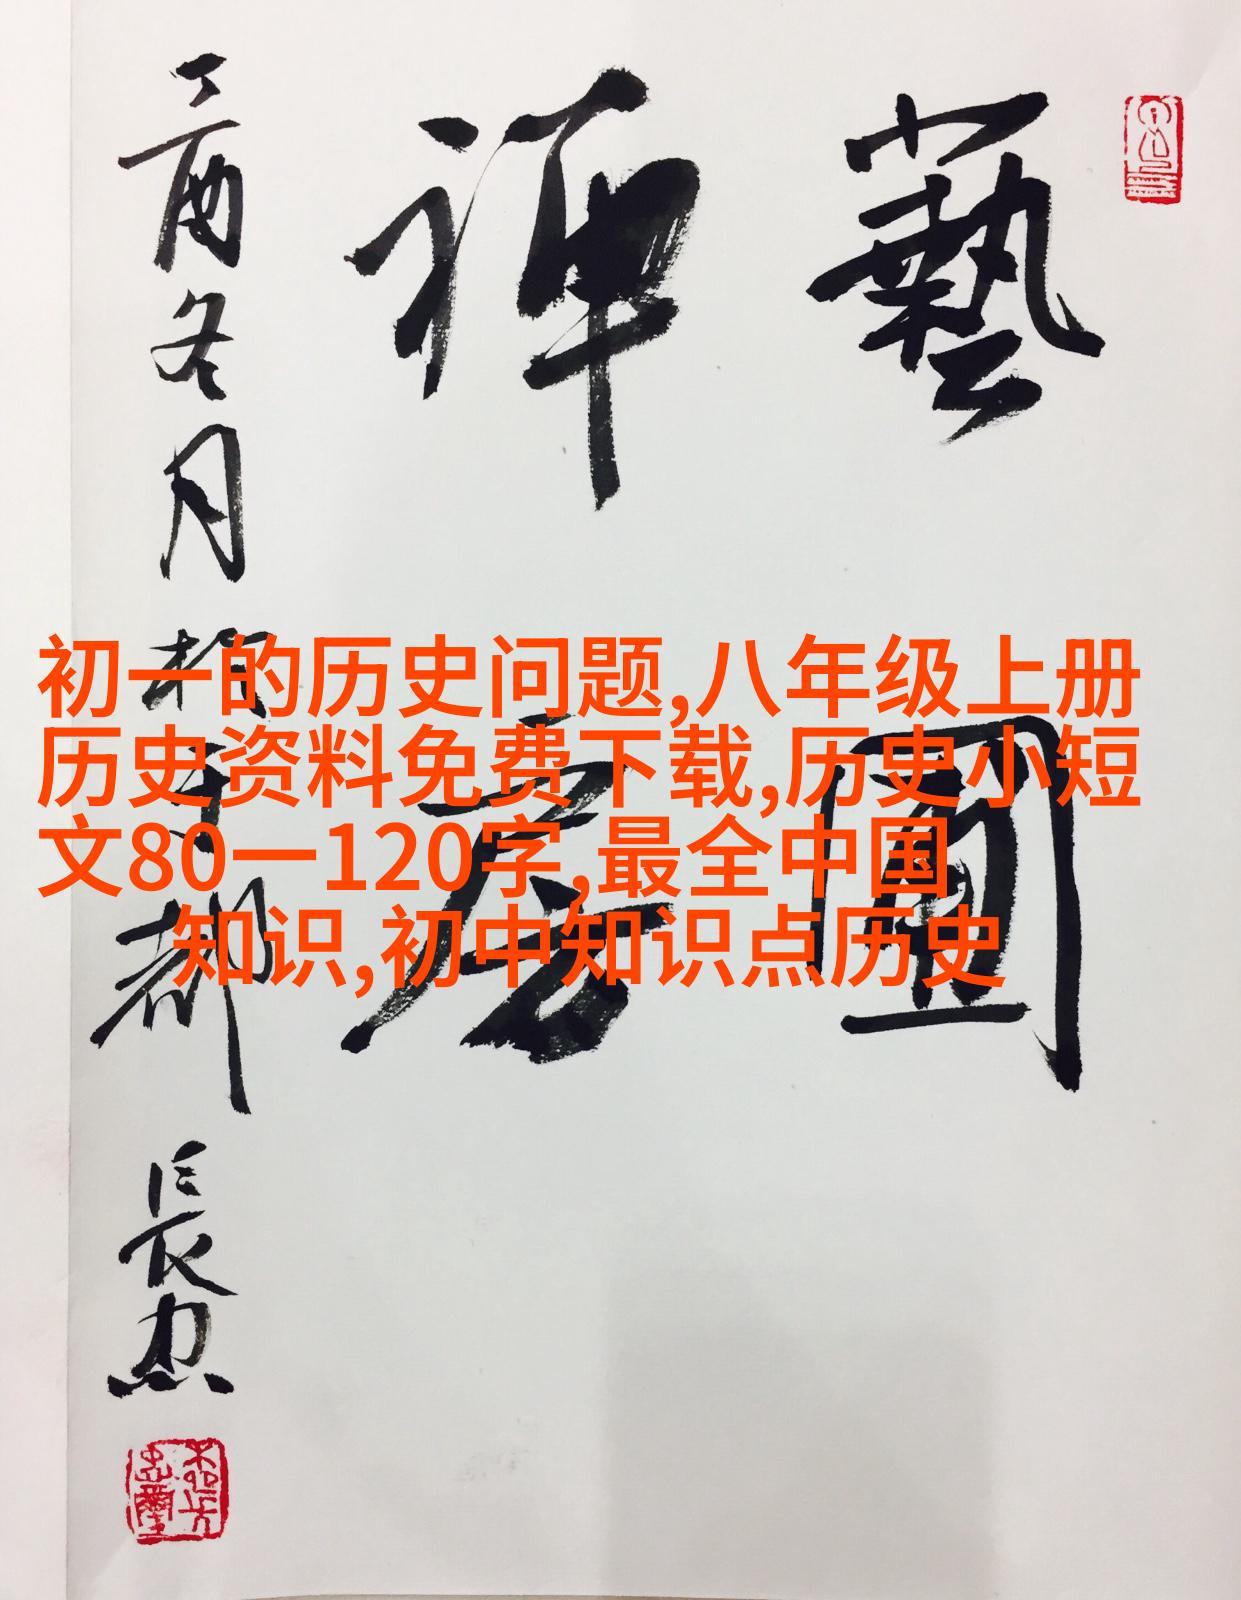 藝
禪
丁酉冬月 都 長
初一的历史问题,八年级上册
历史资料免费下载,历史小短
文80一120字,最全中国
知识,初中知识点历史